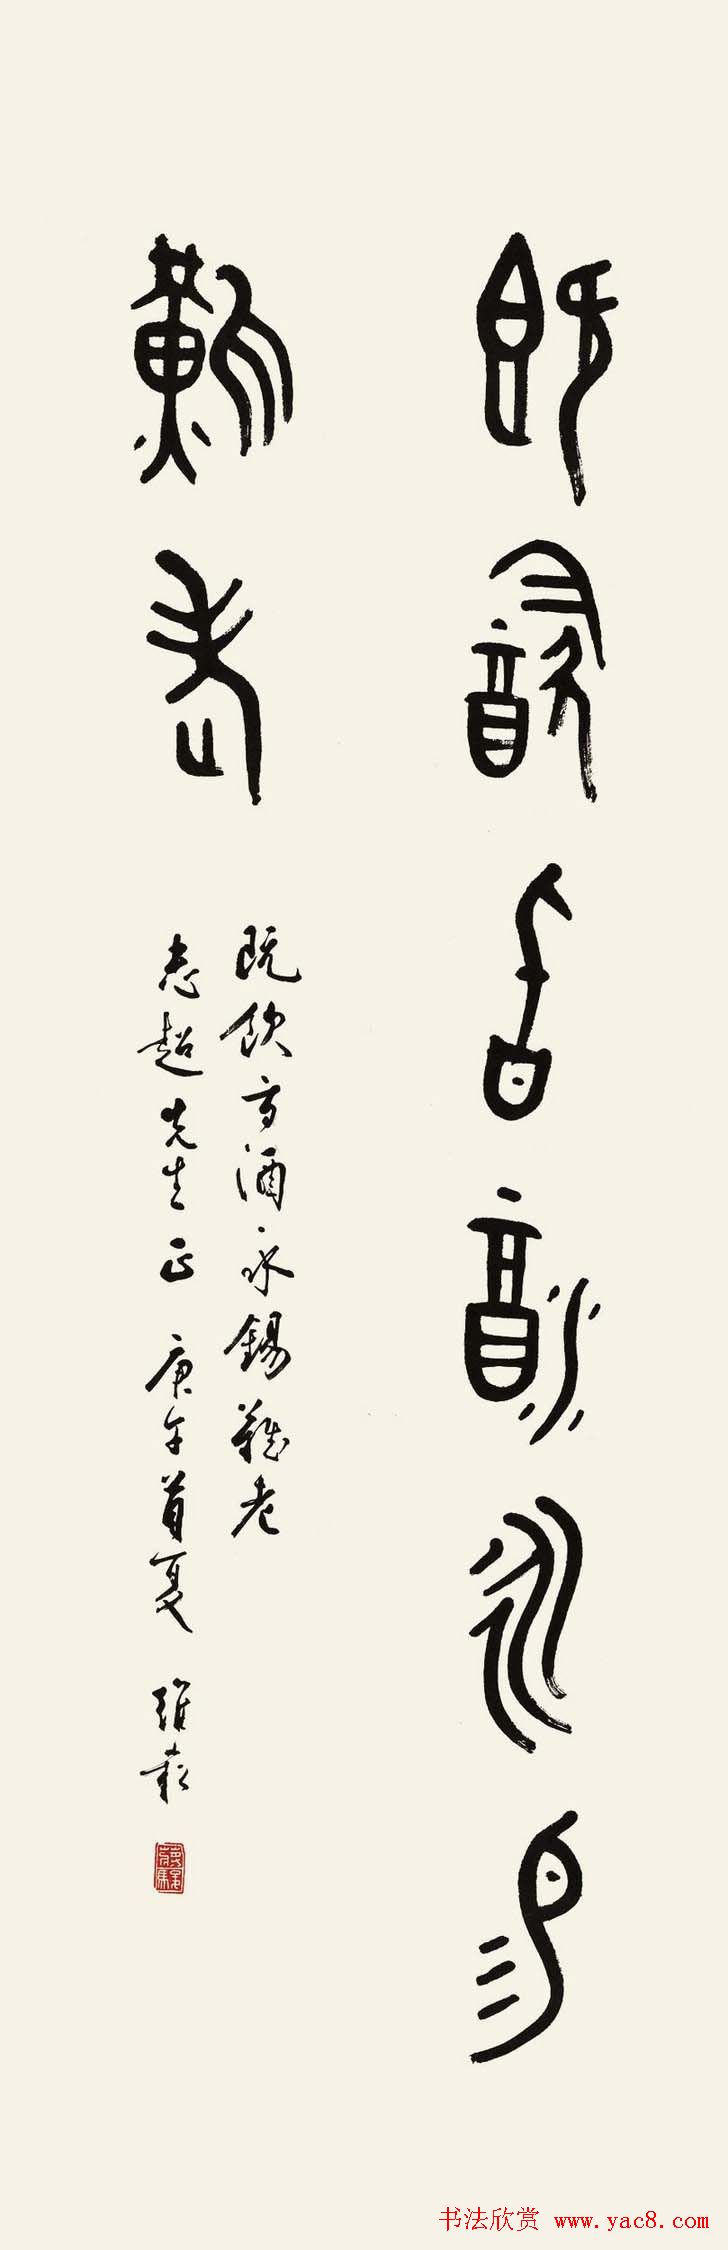 既飲旨酒永錫
難老
既飲旨酒永錫難老
志超先生正 庚午首夏 維崧
书法欣赏 www.yac8.com